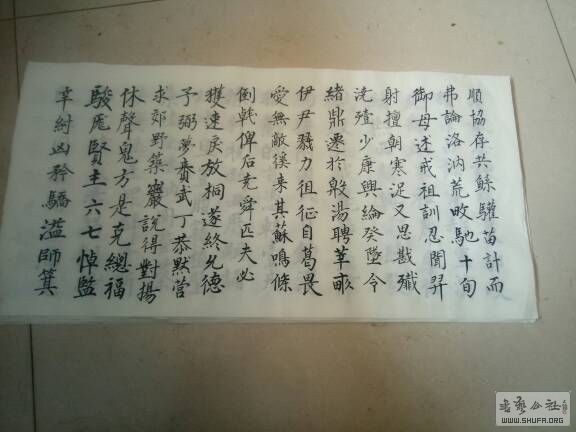 順協存共鯀驩苗計而
弗論洛汭荒畋馳十旬
御母述戒祖訓忍聞羿
射擅朝寒浞又思戡殲
澆殪少康興綸癸墜令
緒鼎遷於亳湯聘莘畝
伊尹戮力徂征自葛畏
愛無敵徯来其蘇鳴條
倒戟俾后尭舜匹夫必
獲速戾放桐遂終允德
予弼夢賚武丁恭默營
求郊野築巖説得對揚
休聲鬼方是克總福
駿厖賢主六七悼監
辛紂凶矜驕溢師箕
书艺公社
WWW.SHUFA.ORG